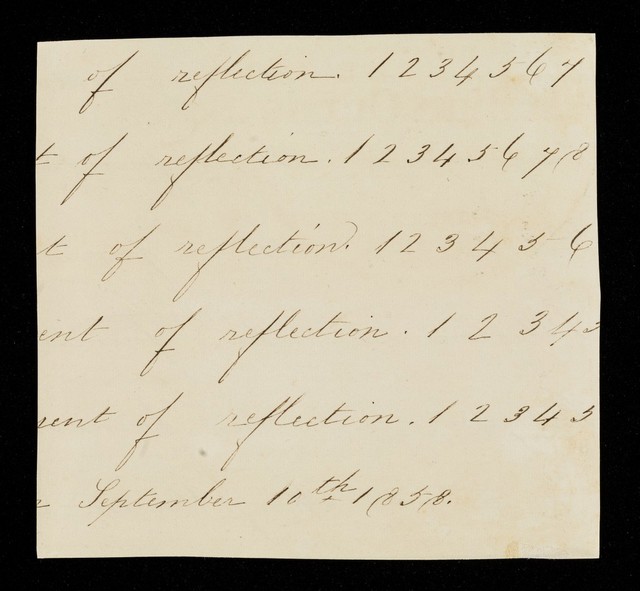 of reflection. 1 2 3 4 5 6 7
t of reflection. 1 2 3 4 5 6 7 8
t of reflection. 1 2 3 4 5 6
ent of reflection. 1 2 3 4 5
ent of reflection. 1 2 3 4 5
September 10th 1858.